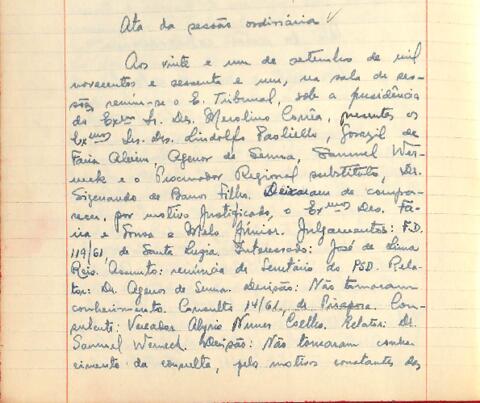 Ata da sessão ordinária
Aos vinte e um de setembro de mil
novecentos e sessenta e um, na sala de ses-
sões reuniu-se o E. Tribunal, sob a presidência
do Exmo Sr. Des. Merolino Corrêa, presentes os
Exmos Srs. Drs. Lindolfo Paoliello, de
Faria Alvim, Agenor de Senna, Samuel Wer-
neck e o Procurador Regional substituto, Dr.
Sizenando de Barros Filho. Deixaram de compa-
recer, por motivo justificado, o Exmos Des. Fa-
ria e Sousa e Melo Júnior. Julgamentos: F.D.
119/61, de Santa Luzia. Interessado: José de Lima
Reis. Assunto: renúncia de Secretário do PSD. Rela-
tor: Dr. Agenor de Senna. Decisão: Não tomaram
conhecimento. Consulta 14/61, de Pirapora. Con-
sulente: Vereador Nunes Coelho. Relator: Dr.
Samuel Werneck. Decisão: Não tomaram conhe-
cimento da consulta, pelos motivos constantes das